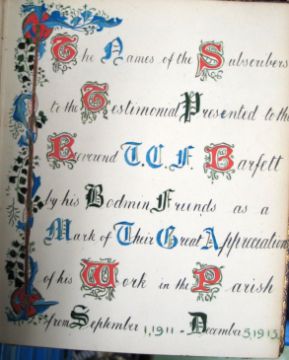 The Names of the Subscribers
to the Testimonial Presented to the
Reverend T.C.F. Barfett
by his Bodmin Friends as a
Mark of Their Great Appreciation
of his Work in the Parish
from September 1, 1911 - December 5, 1915